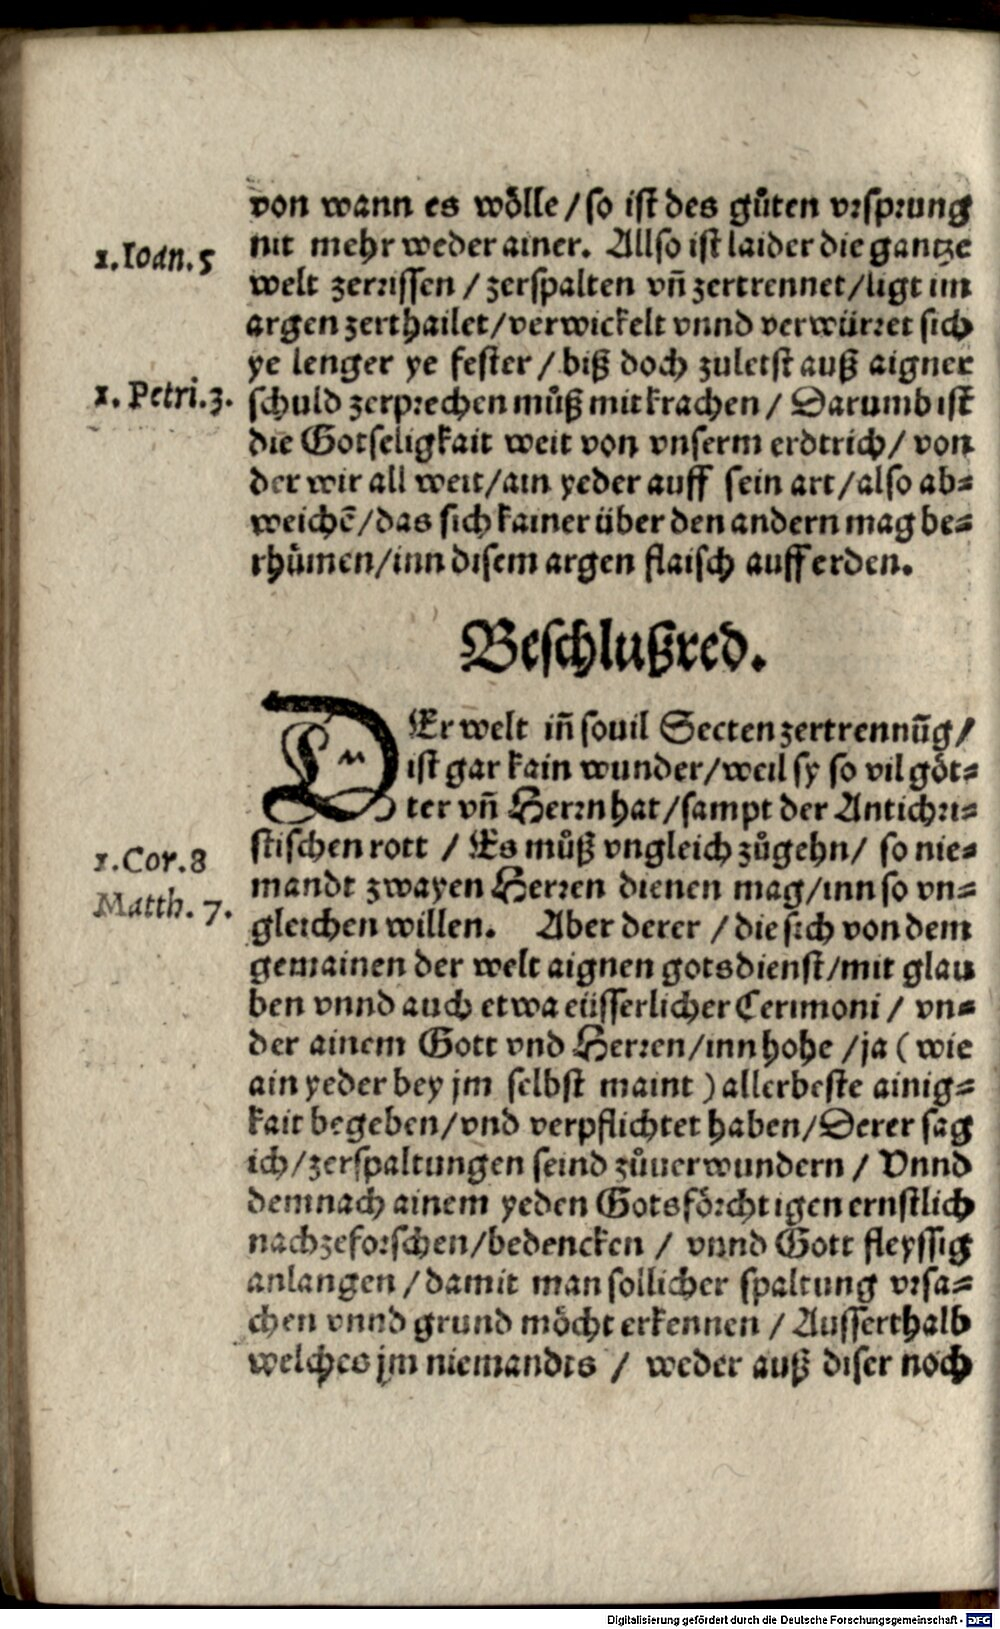 von wann es wölle / so ist des gůten vrsprung
nit mehr weder ainer. Allso ist laider die gantze
1.Ioan.5
welt zerrissen / zerspalten vn̄ zertrennet / ligt im
argen zerthailet / verwickelt vnnd verwürret sich
ye lenger ye fester / biß doch zuletst auß aigner
1. Petri.3.
schuld zerprechen můß mit krachen / Darumb ist
die Gotseligkait weit von vnserm erdtrich / von
der wir all weit / ain yeder auff sein art / also ab-
weichē / das sich kainer über den andern mag be-
rhůmen / inn disem argen flaisch auff erden.
Beschlußred.
DEr welt in̄ souil Secten zertrennūg /
ist gar kain wunder / weil sy so vil göt-
ter vn̄ Herrn hat / sampt der Antichri-
stischen rott / Es můß vngleich zůgehn / so nie-
1.Cor.8
mandt zwayen Herren dienen mag / inn so vn-
Matth. 7.
gleichen willen. Aber derer / die sich von dem
gemainen der welt aignen gotsdienst / mit glau
ben vnnd auch etwa eüsserlicher Cerimoni / vn-
der ainem Gott vnd Herren / inn hohe / ja ( wie
ain yeder bey jm selbst maint ) allerbeste ainig-
kait begeben / vnd verpflichtet haben / Derer sag
ich / zerspaltungen seind zůuerwundern / Vnnd
demnach ainem yeden Gotsförchtigen ernstlich
nachzeforschen / bedencken / vnnd Gott fleyssig
anlangen / damit man sollicher spaltung vrsa-
chen vnnd grund möcht erkennen / Ausserthalb
welches jm niemandts / weder auß diser noch
Digitalisierung gefördert durch die Deutsche Forschungsgemeinschaft - DFG